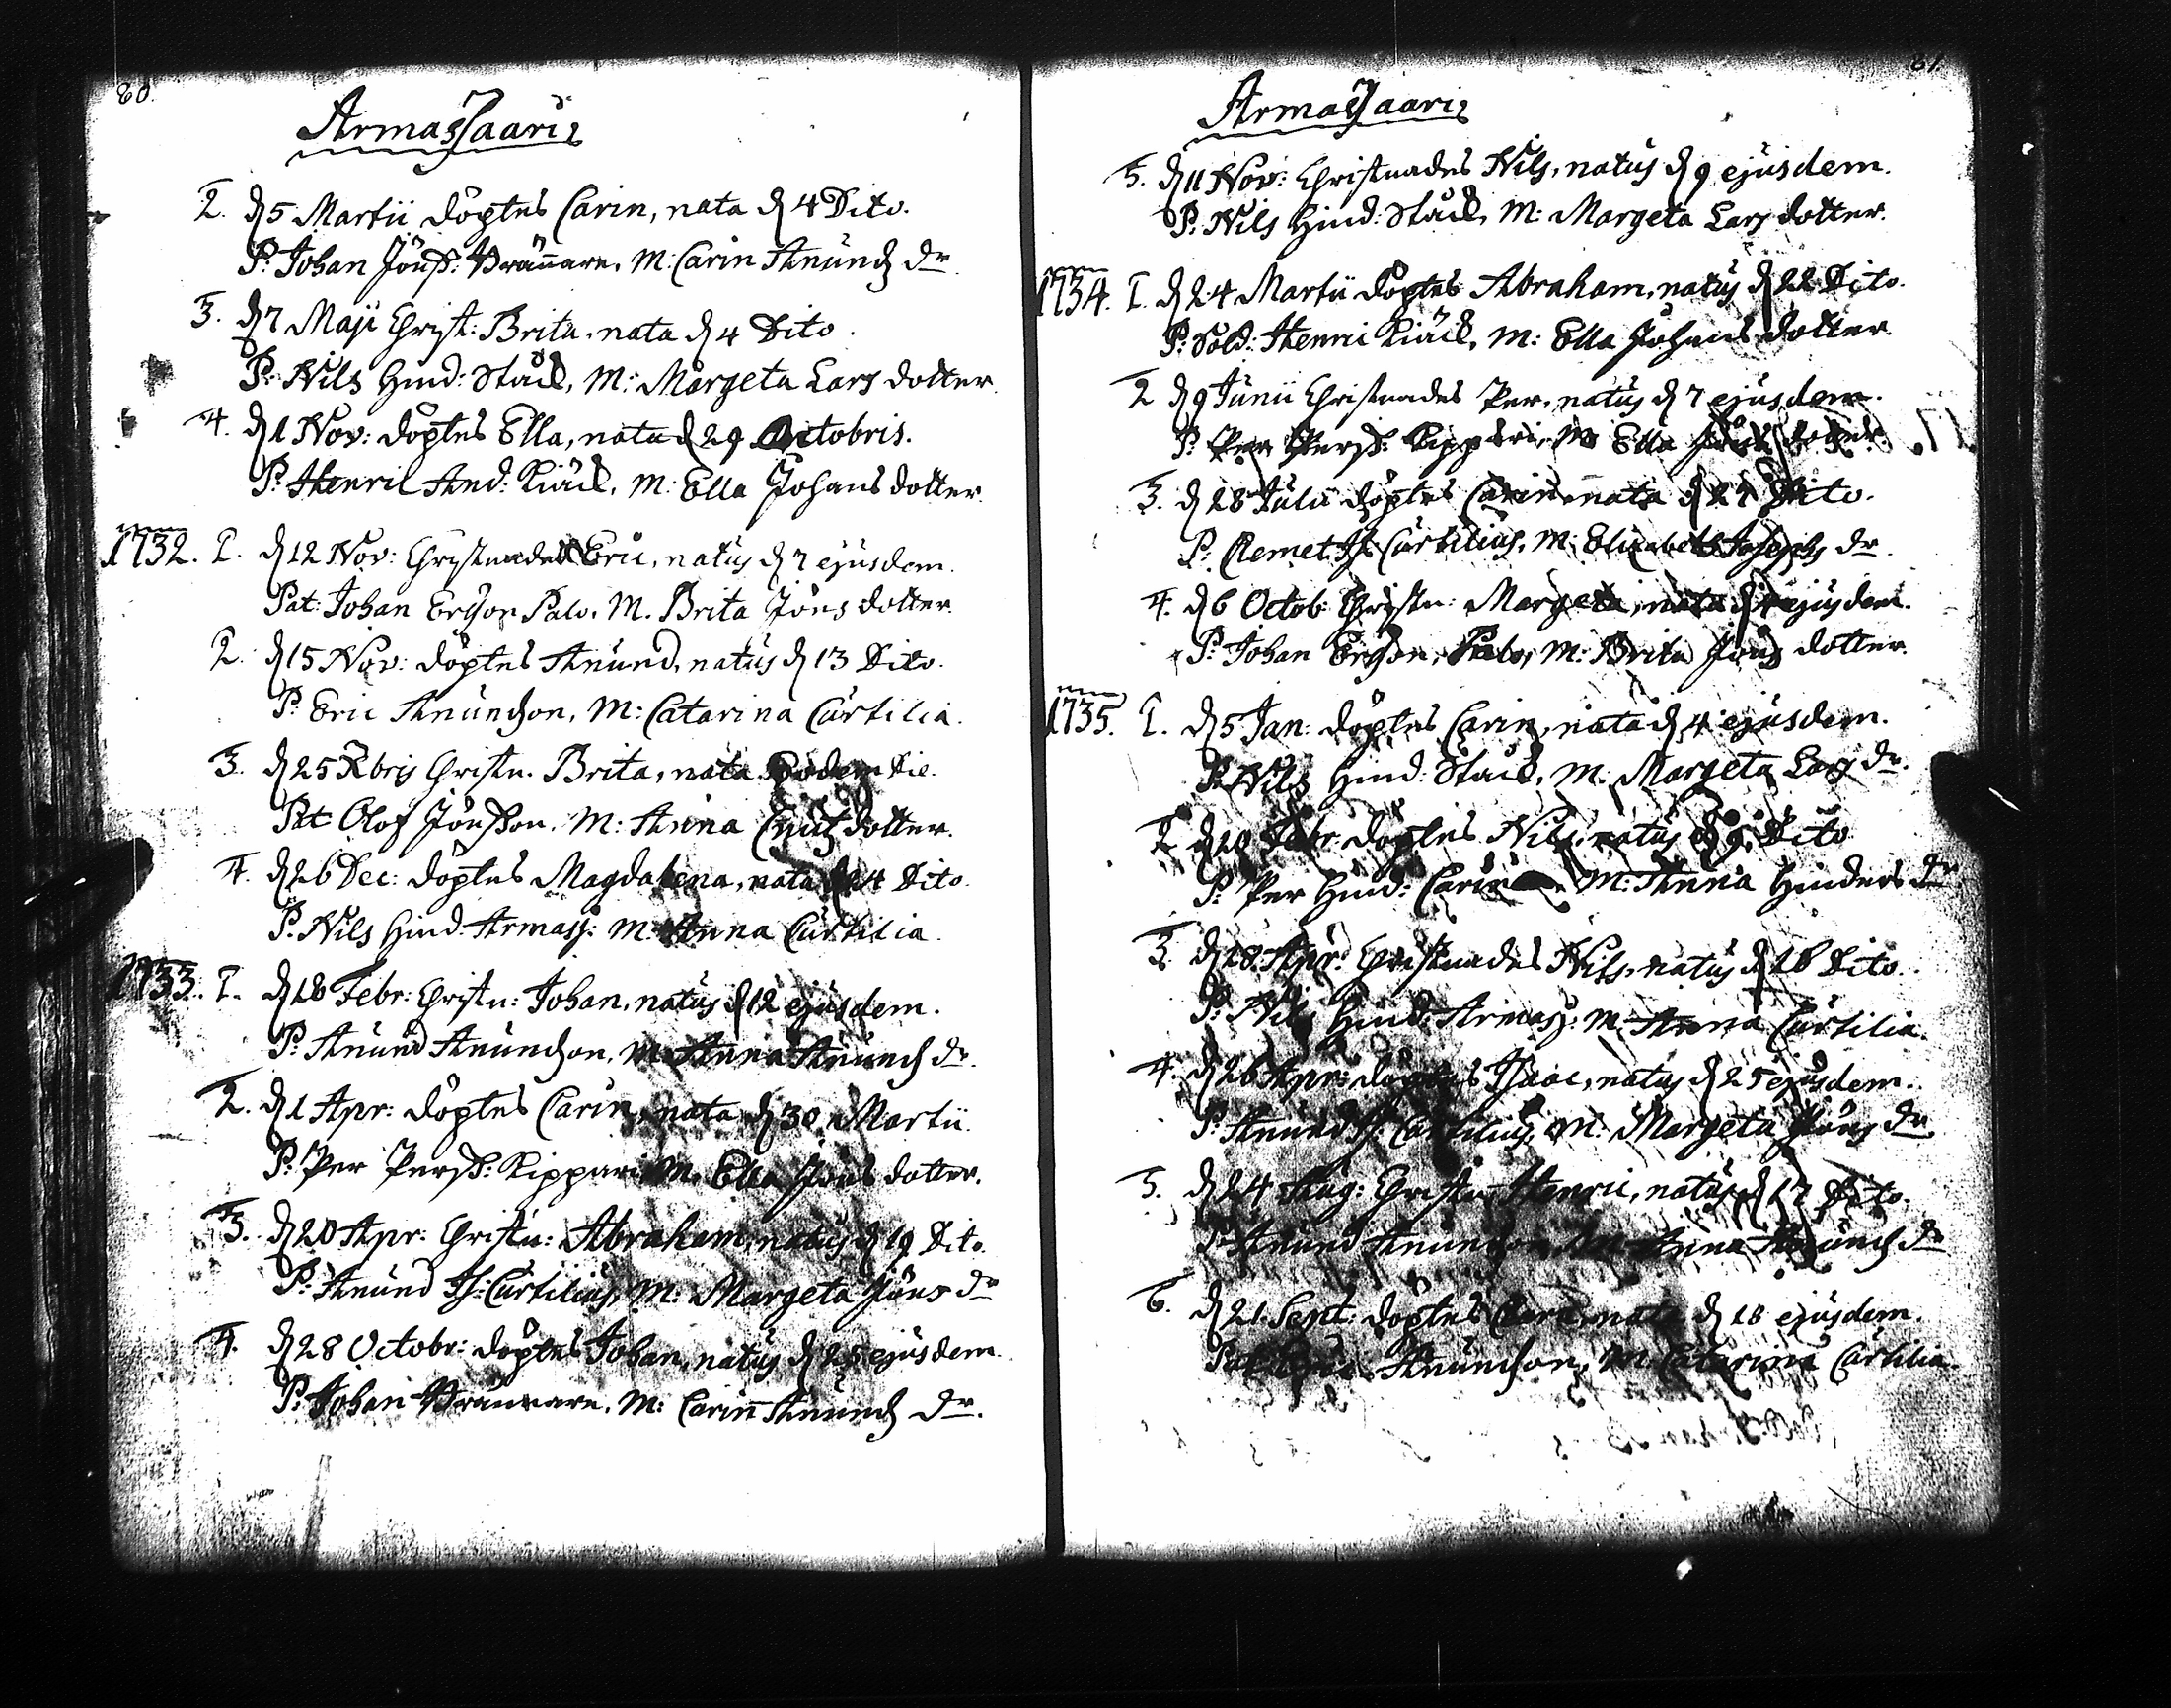 80.
Armassaari
2. d 5 Martii döptes Carin, nata d 4 Dito.
P: Johan Jönss: Brännare, M: Carin Anunds dr
3. d 7 Maji Christ: Brita, nata d 4 Dito.
P: Nils Hind: Stååd, M: Margeta Lars dotter.
4. d 1 Nov: döptes Ella, nata d 29 Octobris.
P: Henric And: Kiäd, M: Ella Johans dotter.
1732. 1. d 12 Nov: Christnades Eric, natus d 7 ejusdem.
Pat: Johan Erson Palo, M. Brita Jöns dotter.
2. d 15 Nov: döptes Anund, natus d 13 Dito.
P: Eric Anundson, M: Catarina Curtilia.
3. d 25 Xbris Christn. Brita, nata Eodem Die.
Pat Olof Jönsson. M: Anna Cnutz dotter.
4. d 26 Dec: döptes Magdalena, nata d 24 Dito.
P: Nils Hind: Armass: M: Anna Curtilia.
1733. 1. d 18 Febr: Christn: Johan, natus d 12 ejusdem.
P: Anund Anundson, M: Anna Anunds dr.
2. d 1 Apr: döptes Carin, nata d 30 Martii.
P: Per Perss: Kippari M. Ella Jöns dotter.
3. d 20 Apr: Christn: Abraham, natus d 19 Dito.
P: Anund Is: Curtilius, M: Margeta Jöns dr
4. d 28 Octobr: döptes Johan, natus d 25 ejusdem.
P: Johan Brännare, M: Carin Anunds dr.
81.
Armassaari
5. d 11 Nov: Christnades Nils, natus d 9 ejusdem.
P: Nils Hind: Stååd, M: Margeta Lars dotter.
1734. 1. d 24 Martii döptes Abraham, natus d 22 Dito.
P: Sold: Henric Kiäd, M: Ella Johans dotter
2 d 9 Junii Christnades Per, natus d 7 ejusdem.
P: Per Perss: Kippari, M Ella Jöns dotter.
3. d 28 Julii döptes Carin, nata d 27 Dito.
P: Clemet Is: Curtilius, M: Elizabeth Josephs dr.
4. d 6 Octob: Christn: Margeta, nata d ejusdem.
P: Johan Erson, Palo, M: Brita Jöns dotter.
1735. 1. d 5 Jan: döptes Carin, nata d 4 ejusdem.
P: Nils Hind: Stååd, M: Margeta Lars dr.
2 d 10 Febr: döptes Nils, natus d 9 Dito
P: Per Hind: M: Anna Hinders dr
3. d 18 Apr: Christnades Nils, natus d 16 Dito.
P: Nils Hind: Armass: M. Anna Curtilia.
4. d 26 Apr: döptes Isaac, natus d 25 ejusdem.
P: Anund Is: Curtilius, M: Margeta Jöns dr
5. d 24 Aug: Christn: Henric, natus d 17 Dito.
P: Anund Anundson M: Anna Anunds dr
6. d 21. Sept: döptes nata d 18 ejusdem.
Pat: Eric Anundson, M Catarina Curtilia.